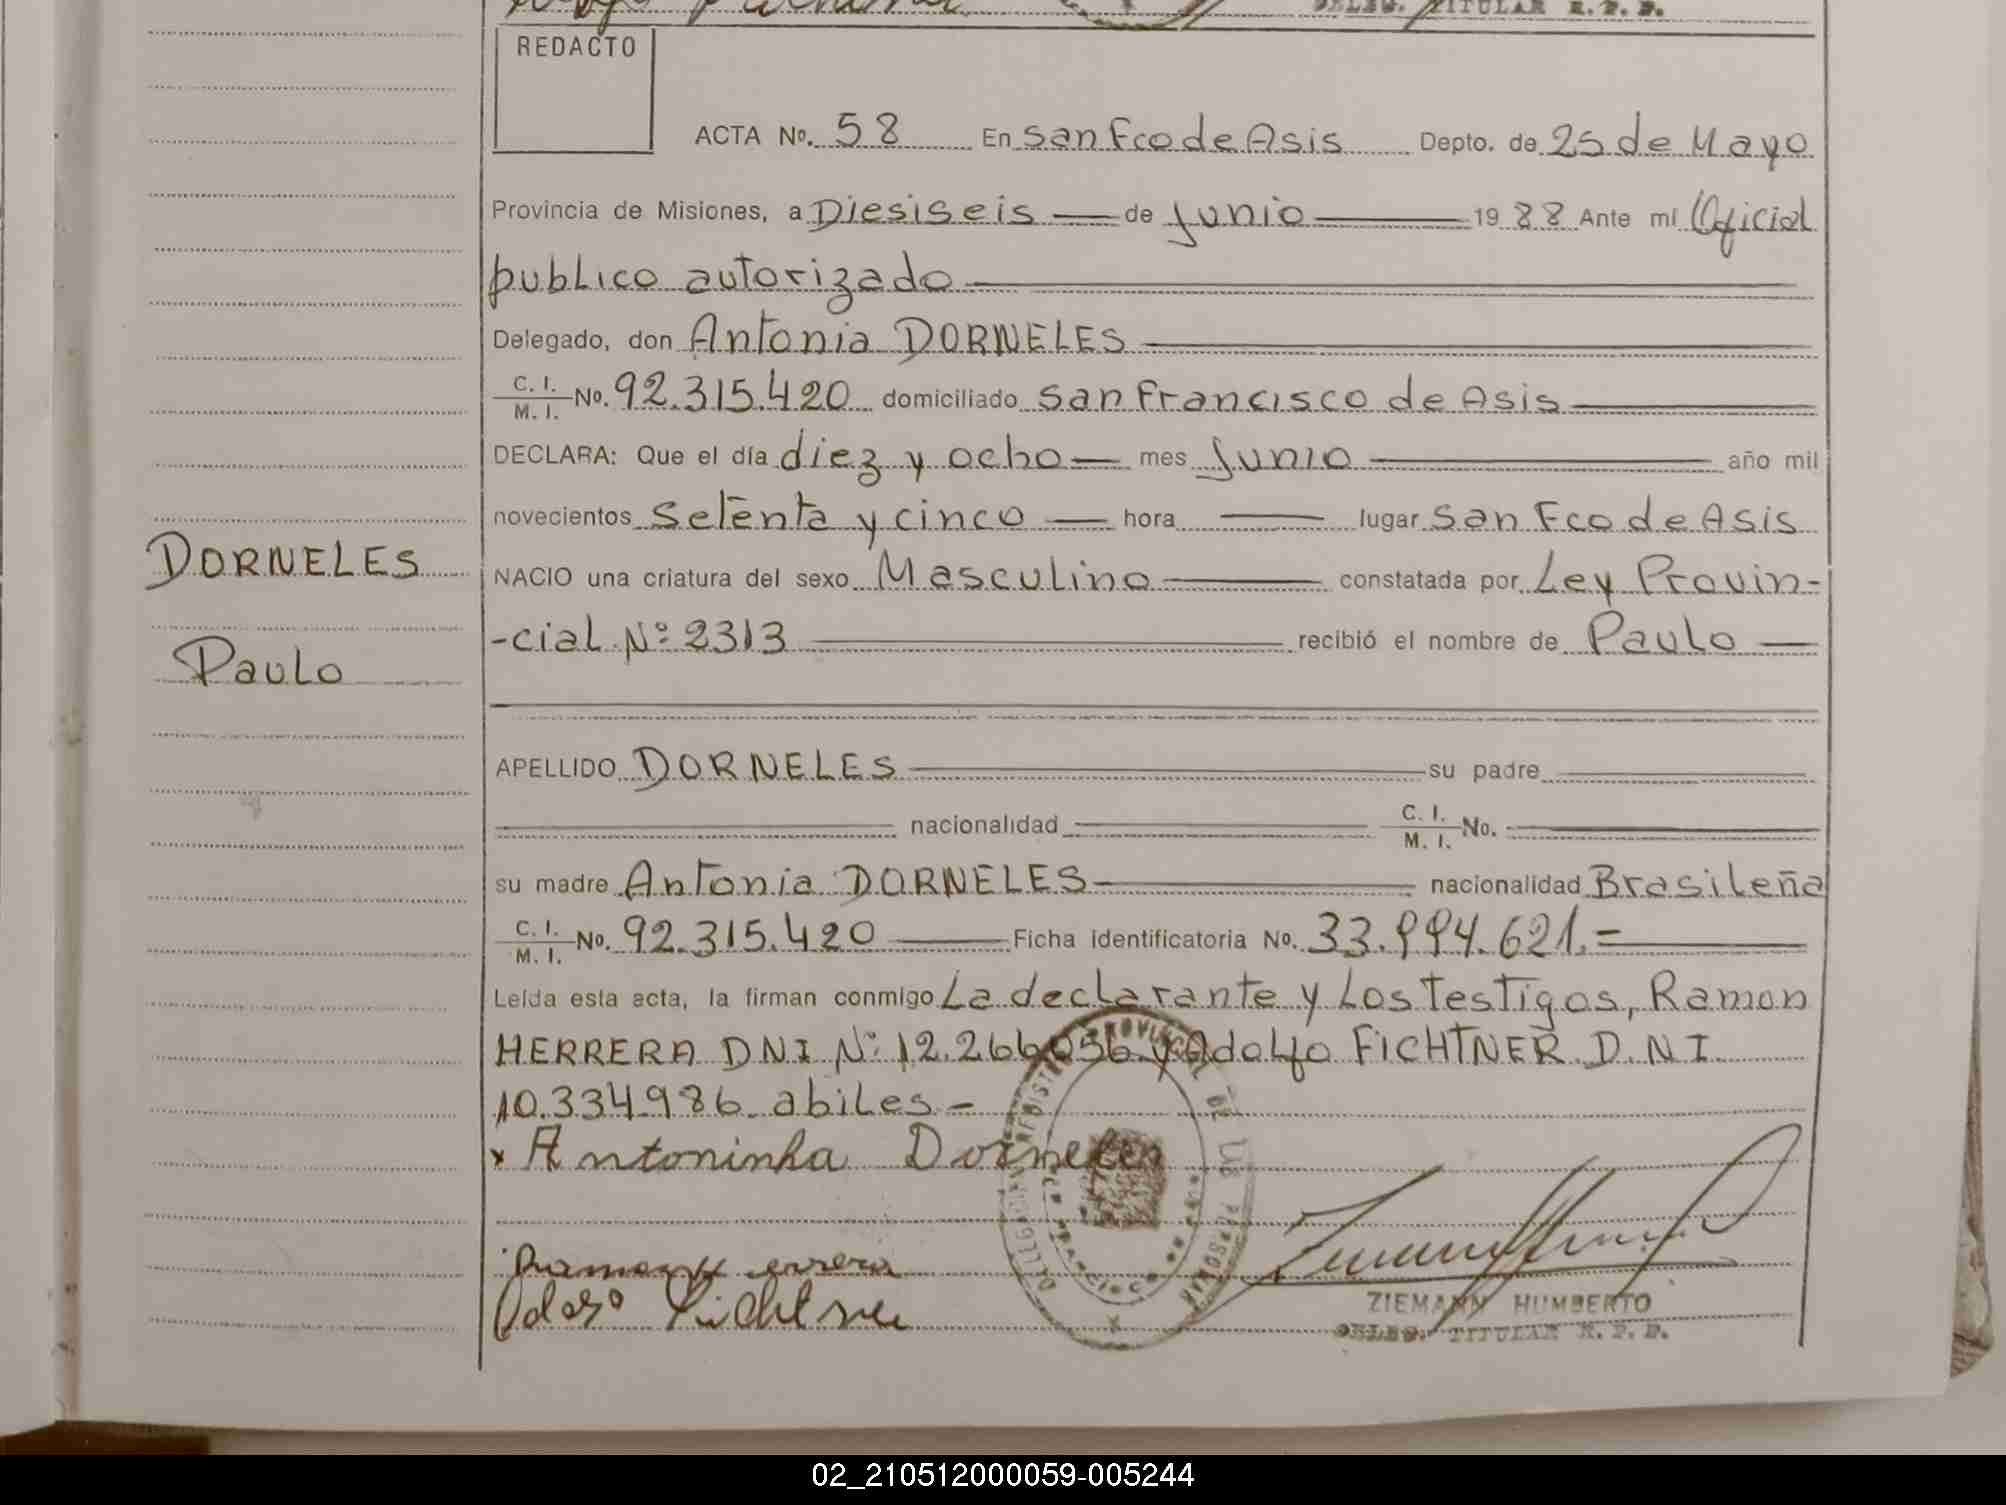 DELEG. TITULAR R. P. P.
REDACTO
ACTA No. 58 En San Fco de Asis Depto. de 25 de Mayo
Provincia de Misiones, a Diesiseis — de junio — 19 88 Ante mi Oficial
publico autorizado —
Delegado, don Antonia DORNELES —
C. I. / M. I. No. 92.315.420 domiciliado San Francisco de Asis —
DECLARA: Que el día diez y ocho — mes Junio — año mil
novecientos Setenta y cinco — hora — lugar San Fco de Asis
NACIO una criatura del sexo Masculino — constatada por Ley Provin-
-cial Nº 2313 — recibió el nombre de Paulo —
DORNELES
Paulo
APELLIDO DORNELES — su padre —
— nacionalidad — C. I. / M. I. No. —
su madre Antonia DORNELES — nacionalidad Brasileña
C. I. / M. I. No. 92.315.420 — Ficha identificatoria No. 33.994.621.=
Leída esta acta, la firman conmigo La declarante y Los Testigos, Ramon
HERRERA DNI Nº 12.266056 y Adolfo FICHTNER D.N.I.
10.334.986 abiles -
x Antoninha Dorneles
Ramon Herrera
ZIEMANN HUMBERTO
DELEG. TITULAR R. P. P.
02_210512000059-005244